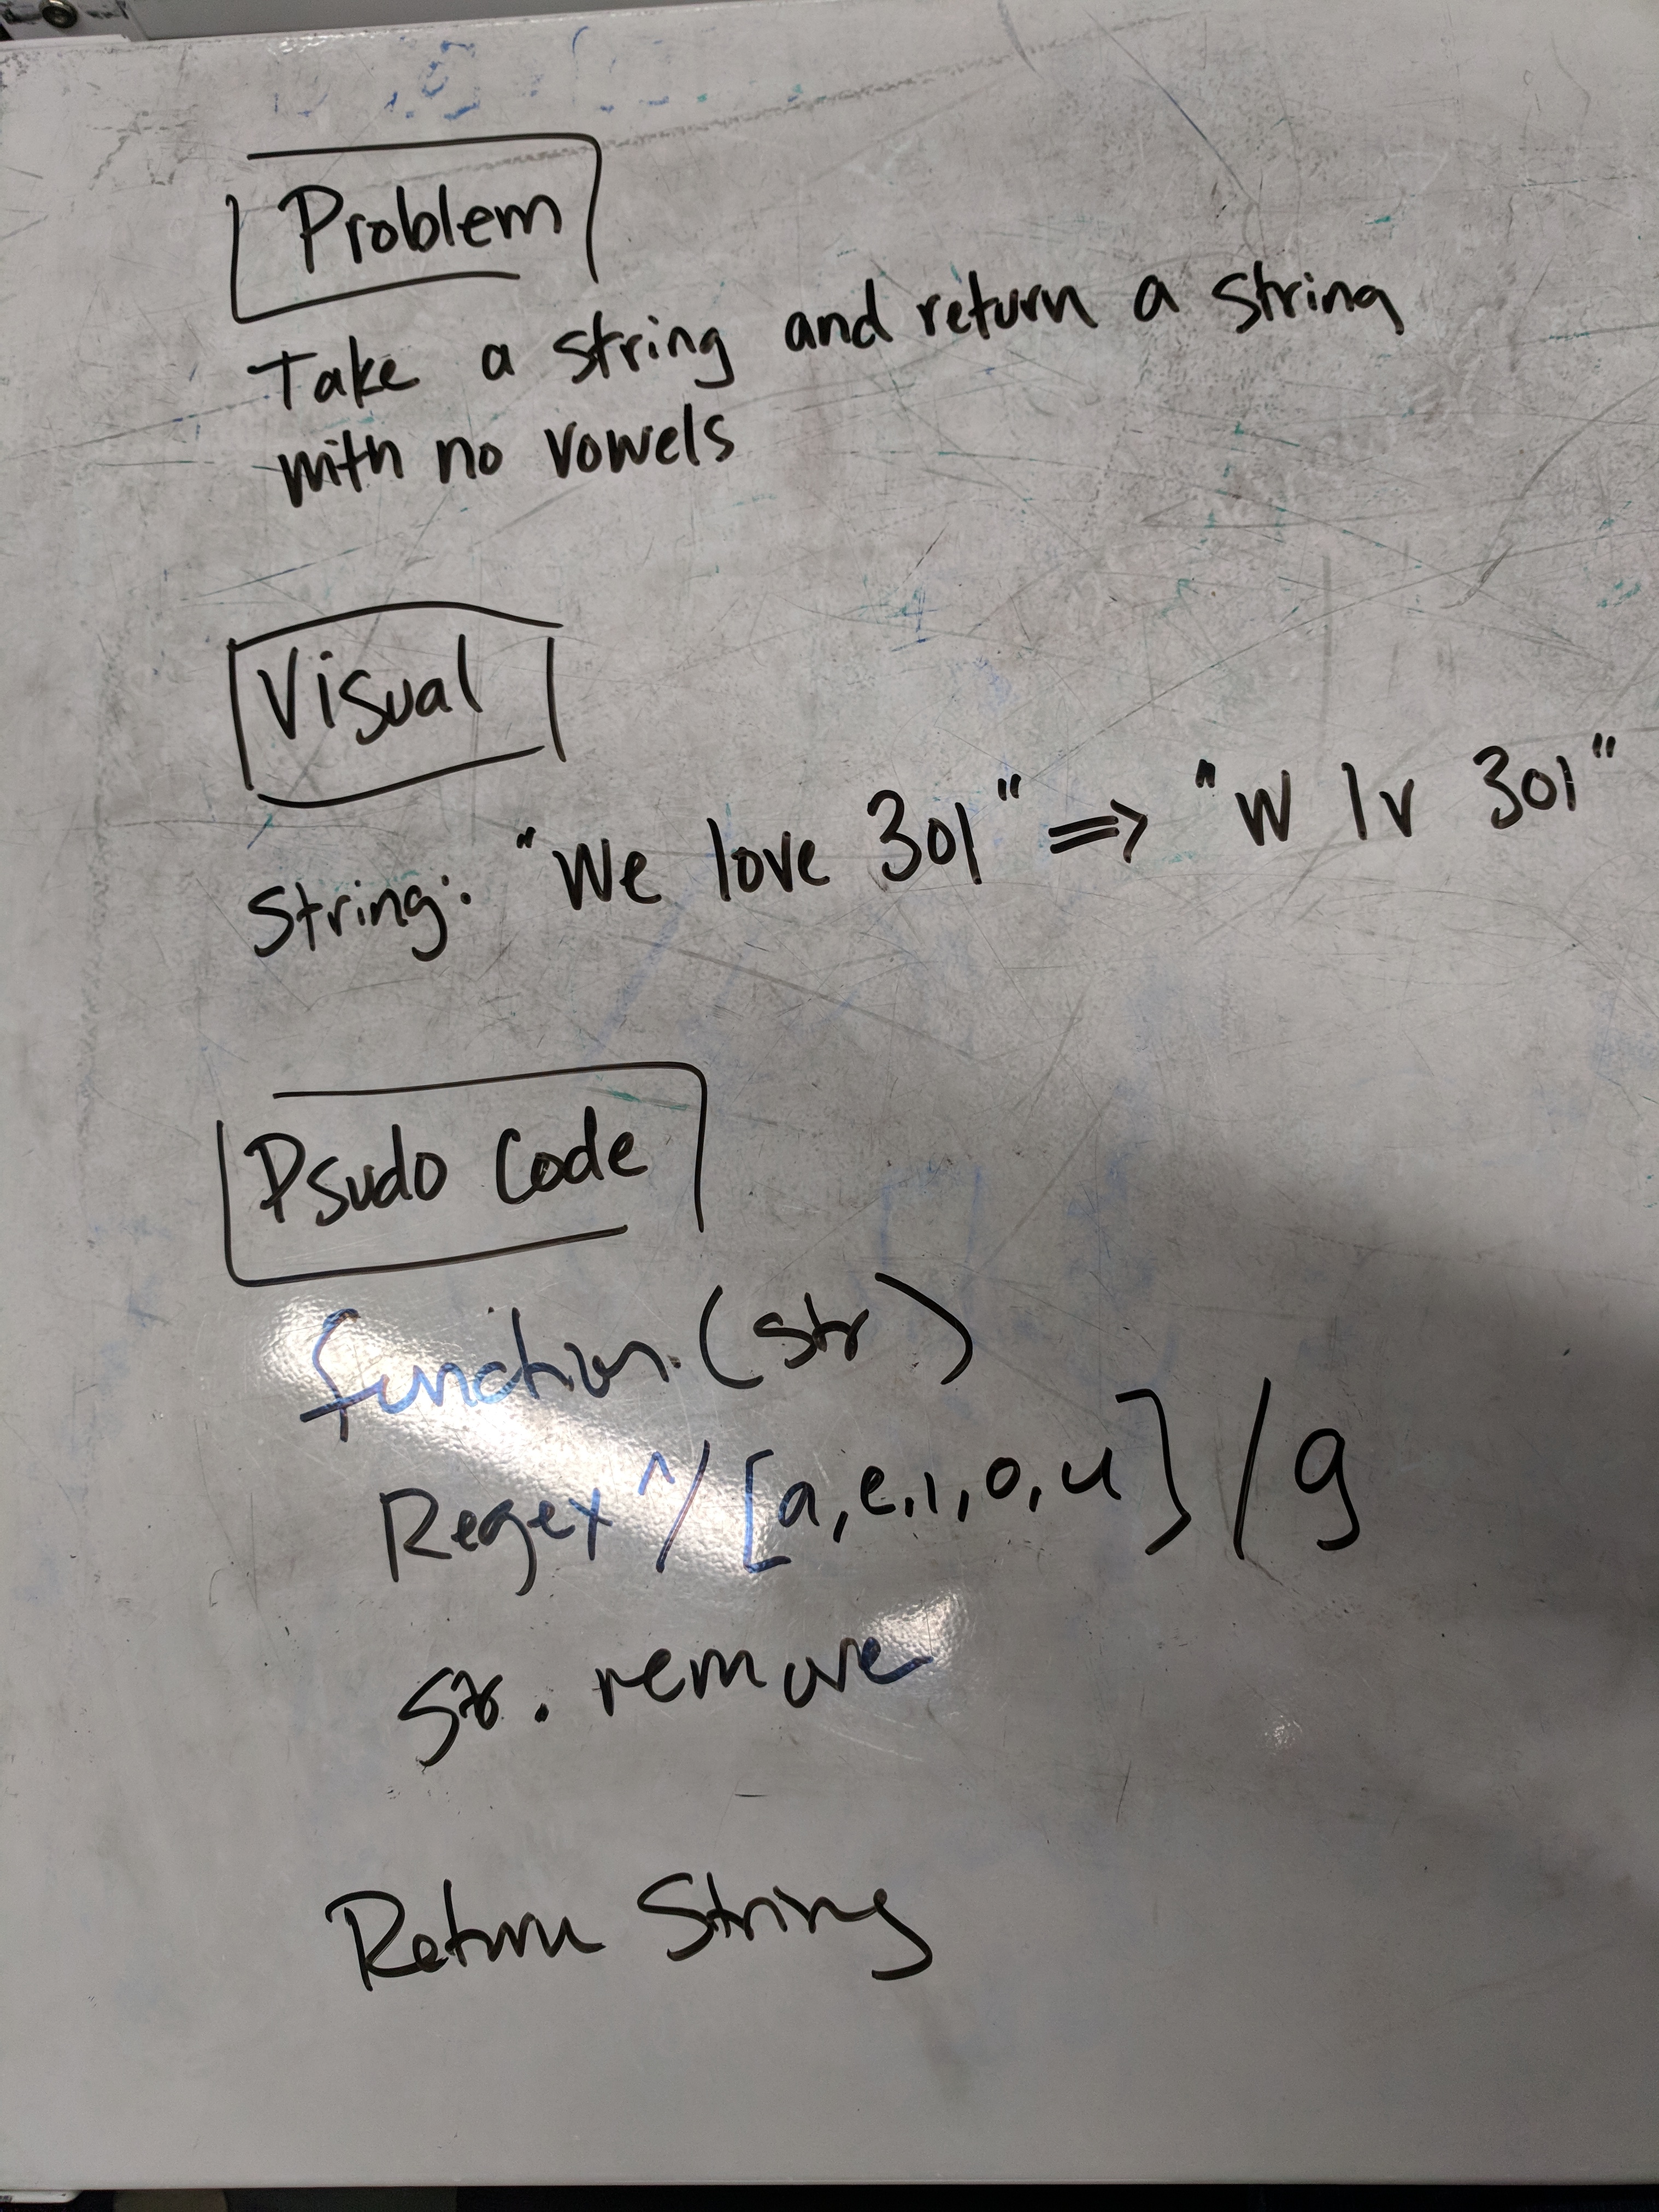 Problem
Take a string and return a string
with no vowels
Visual
String: "We love 301" => "W lv 301"
Psudo Code
function (str)
Regex ^/[a,e,i,o,u]/g
str. remove
Return String